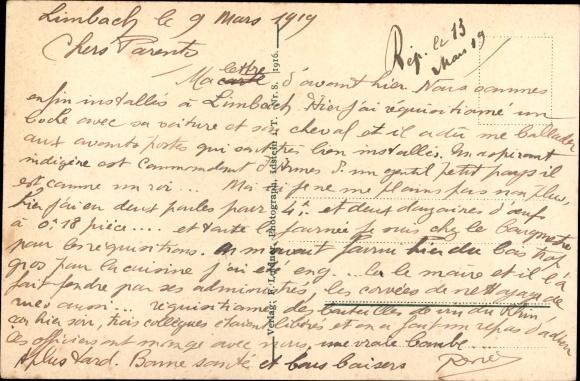 Limbach le 9 Mars 1919
Rép. le 13 Mars 19
Chers Parents
lettre
Ma carte d'avant hier. Nous sommes
enfin installés à Limbach. Hier j'ai réquisitionné un
boche avec sa voiture et son cheval et il a dû me ballader
aux avants postes qui sont très bien installés. Un aspirant
indigène est Commandant d'Armes d'un gentil petit pays il
est comme un roi... Moi je ne me plains pas non plus,
hier j'ai eu deux poules pour 4 et deux douzaines d'œufs
à 0.18 pièce.... et toute la journée je suis chez le bourgmestre
pour les réquisitions. On m'avait fourni hier du bois trop
gros pour la cuisine j'ai eng... le maire et il l'a
fait fendre par ses administrés, les corvées de nettoyage de
rues aussi... réquisitionné des bouteilles de vin du Rhin
car hier soir, trois collègues étaient libérés et on a fait un repas d'adieu
Les officiers ont mangé avec nous, une vraie bombe...
A plus tard. Bonne santé et bons baisers
Verlag: F. Lindner, Photograph, Idstein i. T. Nr. 8. 1916.